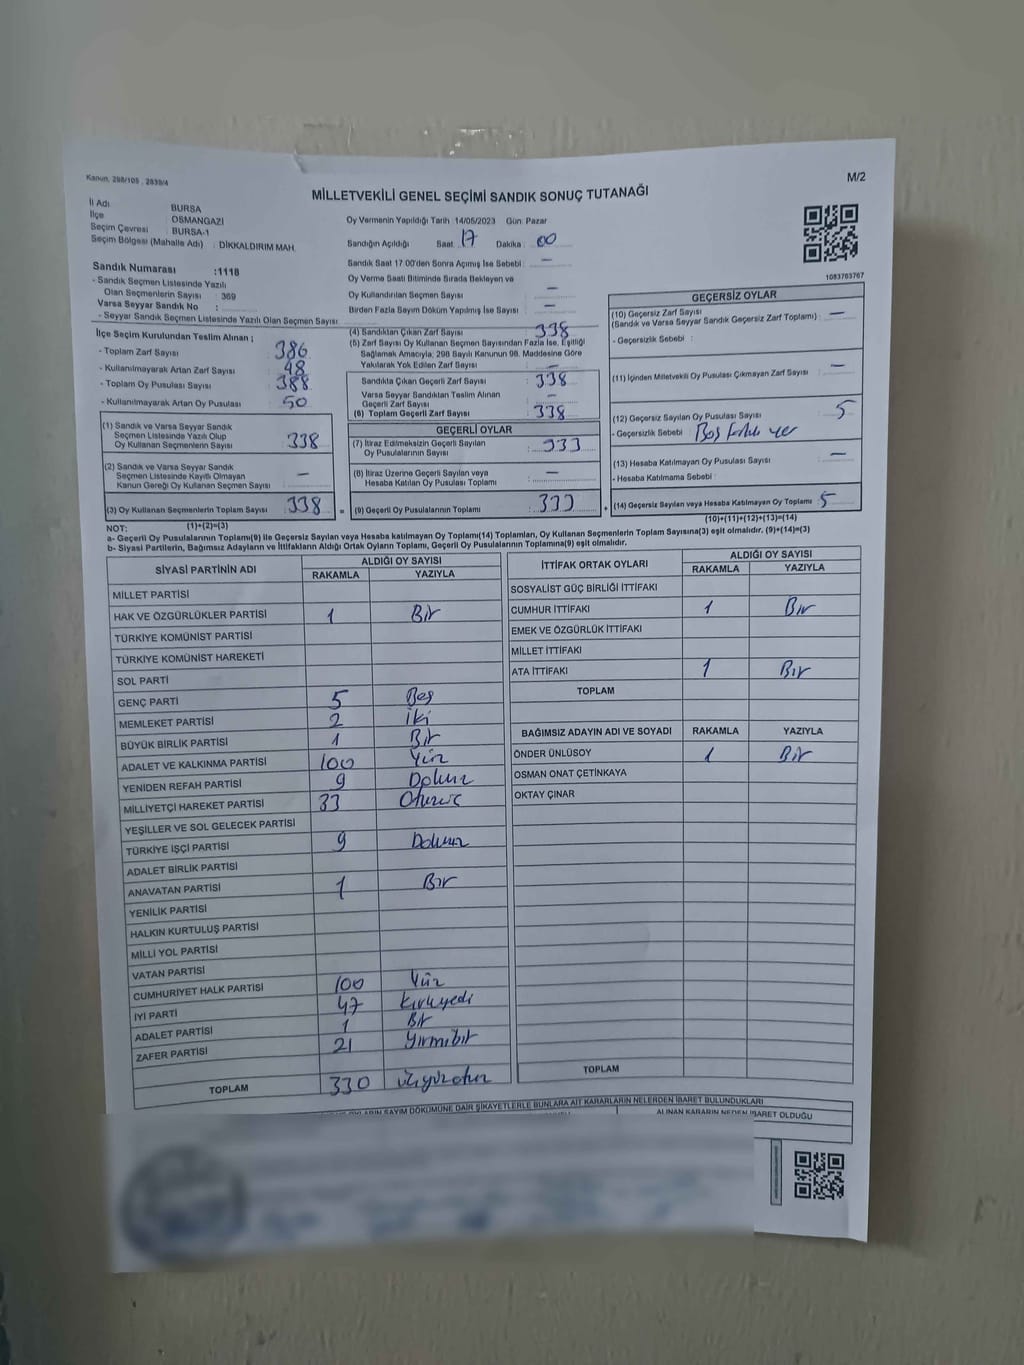 Kanun, 298/105 , 2839/4
M/2
MİLLETVEKİLİ GENEL SEÇİMİ SANDIK SONUÇ TUTANAĞI
İl Adı BURSA
İlçe OSMANGAZİ
Seçim Çevresi BURSA-1
Seçim Bölgesi (Mahalle Adı) : DİKKALDIRIM MAH.
Sandık Numarası :1118
- Sandık Seçmen Listesinde Yazılı
Olan Seçmenlerin Sayısı : 369
Varsa Seyyar Sandık No :
- Seyyar Sandık Seçmen Listesinde Yazılı Olan Seçmen Sayısı:
Oy Vermenin Yapıldığı Tarih 14/05/2023 Gün: Pazar
Sandığın Açıldığı Saat 17 Dakika : 00
Sandık Saat 17:00'den Sonra Açımış İse Sebebi : —
Oy Verme Saati Bitiminde Sırada Bekleyen ve
Oy Kullandırılan Seçmen Sayısı —
Birden Fazla Sayım Döküm Yapılmış İse Sayısı : —
1083763767
İlçe Seçim Kurulundan Teslim Alınan ;
- Toplam Zarf Sayısı : 386
- Kullanılmayarak Artan Zarf Sayısı : 48
- Toplam Oy Pusulası Sayısı : 388
- Kullanılmayarak Artan Oy Pusulası : 50
(1) Sandık ve Varsa Seyyar Sandık
Seçmen Listesinde Yazılı Olup
Oy Kullanan Seçmenlerin Sayısı : 338
(2) Sandık ve Varsa Seyyar Sandık
Seçmen Listesinde Kayıtlı Olmayan
Kanun Gereği Oy Kullanan Seçmen Sayısı : —
(3) Oy Kullanan Seçmenlerin Toplam Sayısı : 338
(1)+(2)=(3)
(4) Sandıktan Çıkan Zarf Sayısı : 338
(5) Zarf Sayısı Oy Kullanan Seçmen Sayısından Fazla İse, Eşitliği
Sağlamak Amacıyla; 298 Sayılı Kanunun 98. Maddesine Göre
Yakılarak Yok Edilen Zarf Sayısı : —
Sandıkta Çıkan Geçerli Zarf Sayısı : 338
Varsa Seyyar Sandıktan Teslim Alınan
Geçerli Zarf Sayısı : —
(6) Toplam Geçerli Zarf Sayısı : 338
GEÇERLİ OYLAR
(7) İtiraz Edilmeksizin Geçerli Sayılan
Oy Pusulalarının Sayısı : 333
(8) İtiraz Üzerine Geçerli Sayılan veya
Hesaba Katılan Oy Pusulası Toplamı : —
= (9) Geçerli Oy Pusulalarının Toplamı : 333
GEÇERSİZ OYLAR
(10) Geçersiz Zarf Sayısı
(Sandık ve Varsa Seyyar Sandık Geçersiz Zarf Toplamı) : —
- Geçersizlik Sebebi :
(11) İçinden Milletvekili Oy Pusulası Çıkmayan Zarf Sayısı : —
(12) Geçersiz Sayılan Oy Pusulası Sayısı : 5
- Geçersizlik Sebebi : Boş
(13) Hesaba Katılmayan Oy Pusulası Sayısı : —
- Hesaba Katılmama Sebebi :
+ (14) Geçersiz Sayılan veya Hesaba Katılmayan Oy Toplamı : 5
(10)+(11)+(12)+(13)=(14)
NOT:
a- Geçerli Oy Pusulalarının Toplamı(9) ile Geçersiz Sayılan veya Hesaba katılmayan Oy Toplamı(14) Toplamları, Oy Kullanan Seçmenlerin Toplam Sayısına(3) eşit olmalıdır. (9)+(14)=(3)
b- Siyasi Partilerin, Bağımsız Adayların ve İttifakların Aldığı Ortak Oyların Toplamı, Geçerli Oy Pusulalarının Toplamına(9) eşit olmalıdır.
SİYASİ PARTİNİN ADI ALDIĞI OY SAYISI
RAKAMLA YAZIYLA
MİLLET PARTİSİ
HAK VE ÖZGÜRLÜKLER PARTİSİ 1 Bir
TÜRKİYE KOMÜNİST PARTİSİ
TÜRKİYE KOMÜNİST HAREKETİ
SOL PARTİ
GENÇ PARTİ 5 Beş
MEMLEKET PARTİSİ 2 İki
BÜYÜK BİRLİK PARTİSİ 1 Bir
ADALET VE KALKINMA PARTİSİ 100 Yüz
YENİDEN REFAH PARTİSİ 9 Dokuz
MİLLİYETÇİ HAREKET PARTİSİ 33 Otuzüç
YEŞİLLER VE SOL GELECEK PARTİSİ
TÜRKİYE İŞÇİ PARTİSİ 9 Dokuz
ADALET BİRLİK PARTİSİ
ANAVATAN PARTİSİ 1 Bir
YENİLİK PARTİSİ
HALKIN KURTULUŞ PARTİSİ
MİLLİ YOL PARTİSİ
VATAN PARTİSİ
CUMHURİYET HALK PARTİSİ 100 Yüz
İYİ PARTİ 47 Kırkyedi
ADALET PARTİSİ 1 Bir
ZAFER PARTİSİ 21 Yirmibir
TOPLAM 330 üçyüzotuz
İTTİFAK ORTAK OYLARI ALDIĞI OY SAYISI
RAKAMLA YAZIYLA
SOSYALİST GÜÇ BİRLİĞİ İTTİFAKI
CUMHUR İTTİFAKI 1 Bir
EMEK VE ÖZGÜRLÜK İTTİFAKI
MİLLET İTTİFAKI
ATA İTTİFAKI 1 Bir
TOPLAM
BAĞIMSIZ ADAYIN ADI VE SOYADI RAKAMLA YAZIYLA
ÖNDER ÜNLÜSOY 1 Bir
OSMAN ONAT ÇETİNKAYA
OKTAY ÇINAR
TOPLAM
OYLARIN SAYIM DÖKÜMÜNE DAİR ŞİKAYETLERLE BUNLARA AİT KARARLARIN NELERDEN İBARET BULUNDUKLARI
ALINAN KARARIN NEDEN İBARET OLDUĞU